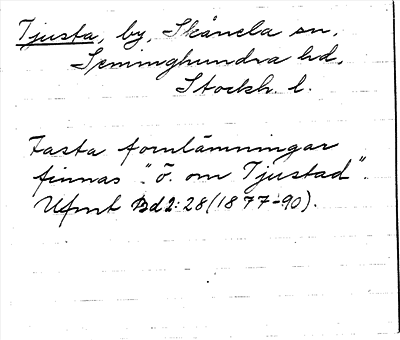 Tjusta, by, Skånela sn,
Seminghundra hd,
Stockh. l.
Fasta fornlämningar
finnas "ö. om Tjustad".
Ufmt Bd2: 28 (1877-90).